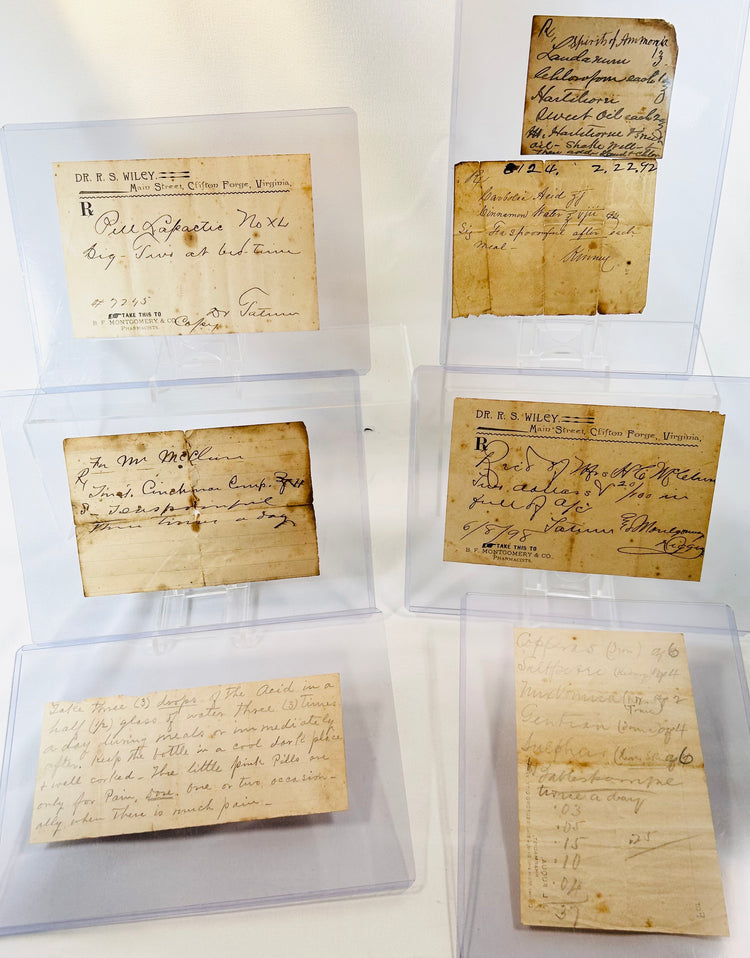 DR. R. S. WILEY,
Main Street, Clifton Forge, Virginia,
℞
Pill Lapactic No XL
Sig - Two at bed time
# 7245
Dr Tatum
TAKE THIS TO
B. F. MONTGOMERY & CO.
PHARMACISTS.
Copy
℞ Spirits of Ammonia
Laudanum
Chloroform each
Hartshorne
Sweet Oil each
Hartshorne & Sweet
oil - Shake Well - &
then add
124. 2,22,92
℞
Carbolic Acid
Cinnamon Water
Sig - spoonful after each
meal -
Kinney
For Mr McClun
℞
Tinct. Cinchonae Comp.
S - Teaspoonful
three times a day
DR. R. S. WILEY,
Main Street, Clifton Forge, Virginia,
℞
of Mrs H C McClun
Two dollars & 20/100 in
full of a/c
6/8/98 Tatum & Montgomery
TAKE THIS TO
B. F. MONTGOMERY & CO.
PHARMACISTS.
Take three (3) drops of the Acid in a
half (1/2) glass of water three (3) times
a day during meals or immediately
after. Keep the bottle in a cool dark place
& well corked - The little pink Pills are
only for Pain, Dose, one or two, occasion-
ally when there is much pain -
Copperas (Iron) 6
Saltpetre 4
Nux Vomica 2
Gentian 4
Sulphur 6
Tablespoonful
twice a day
.03
.05
.15 .25
.10
.04